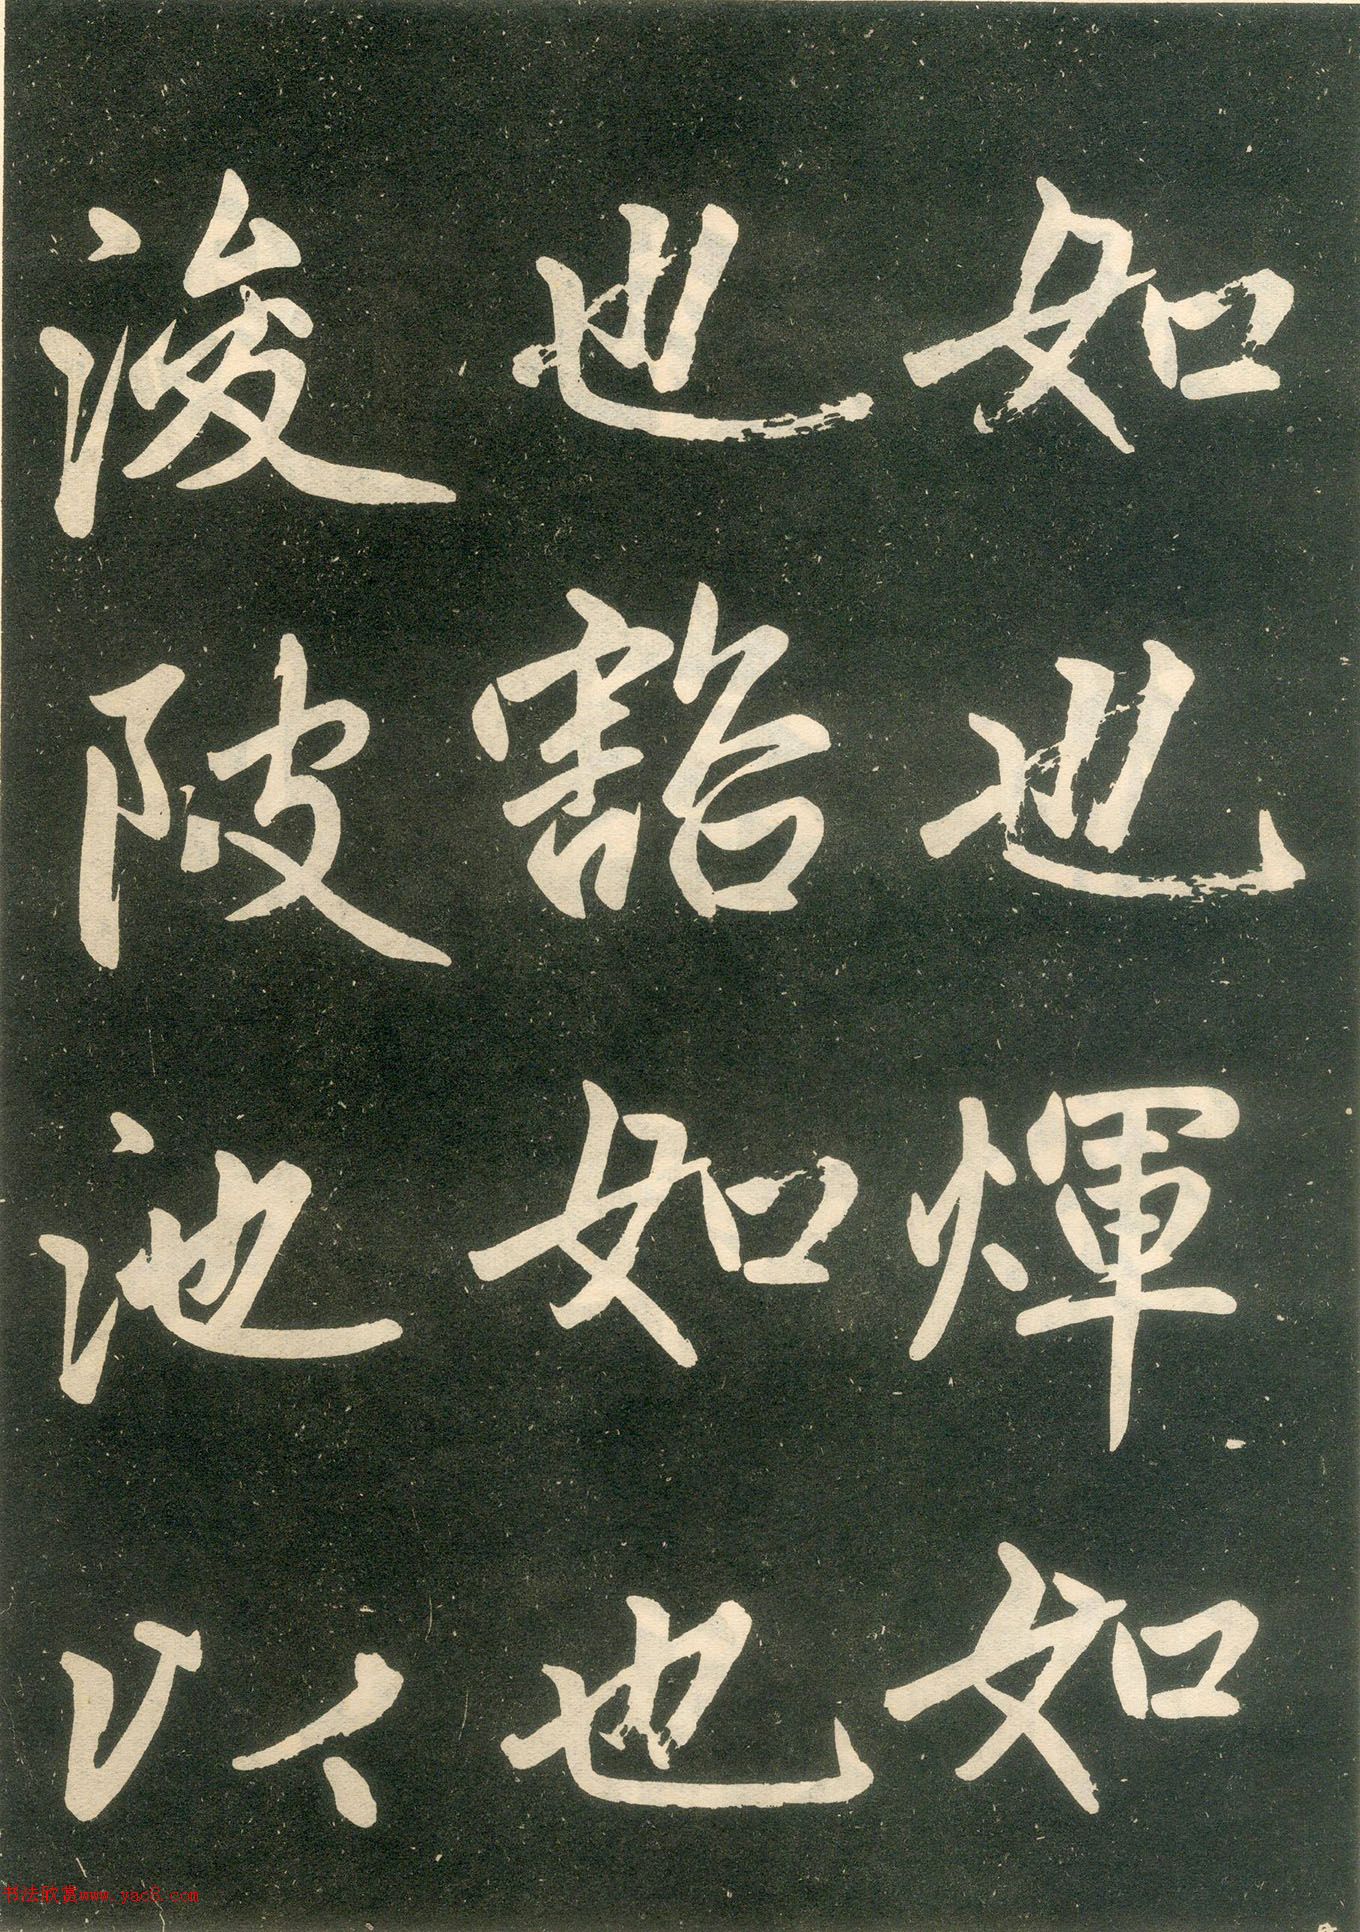 如也煇如
也豁如也
浚陂池以
书法欣赏www.yac8.com